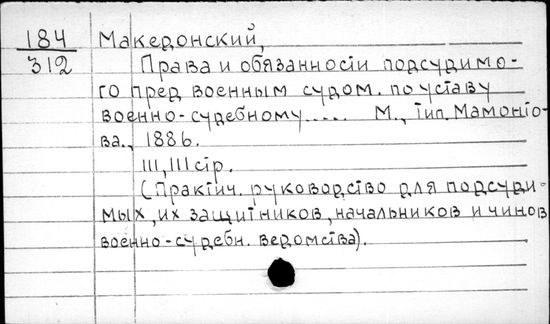 184 Македонский,
312 Права и обязанности подсудимо-
го пред военным судом. по уставу
военно-судебному ..... М., тип. Мамонто-
ва., 1886.
III, 111 стр.
(Практич. руководство для подсуди-
мых, их защитников, начальников и чинов
военно-судебн. ведомства).